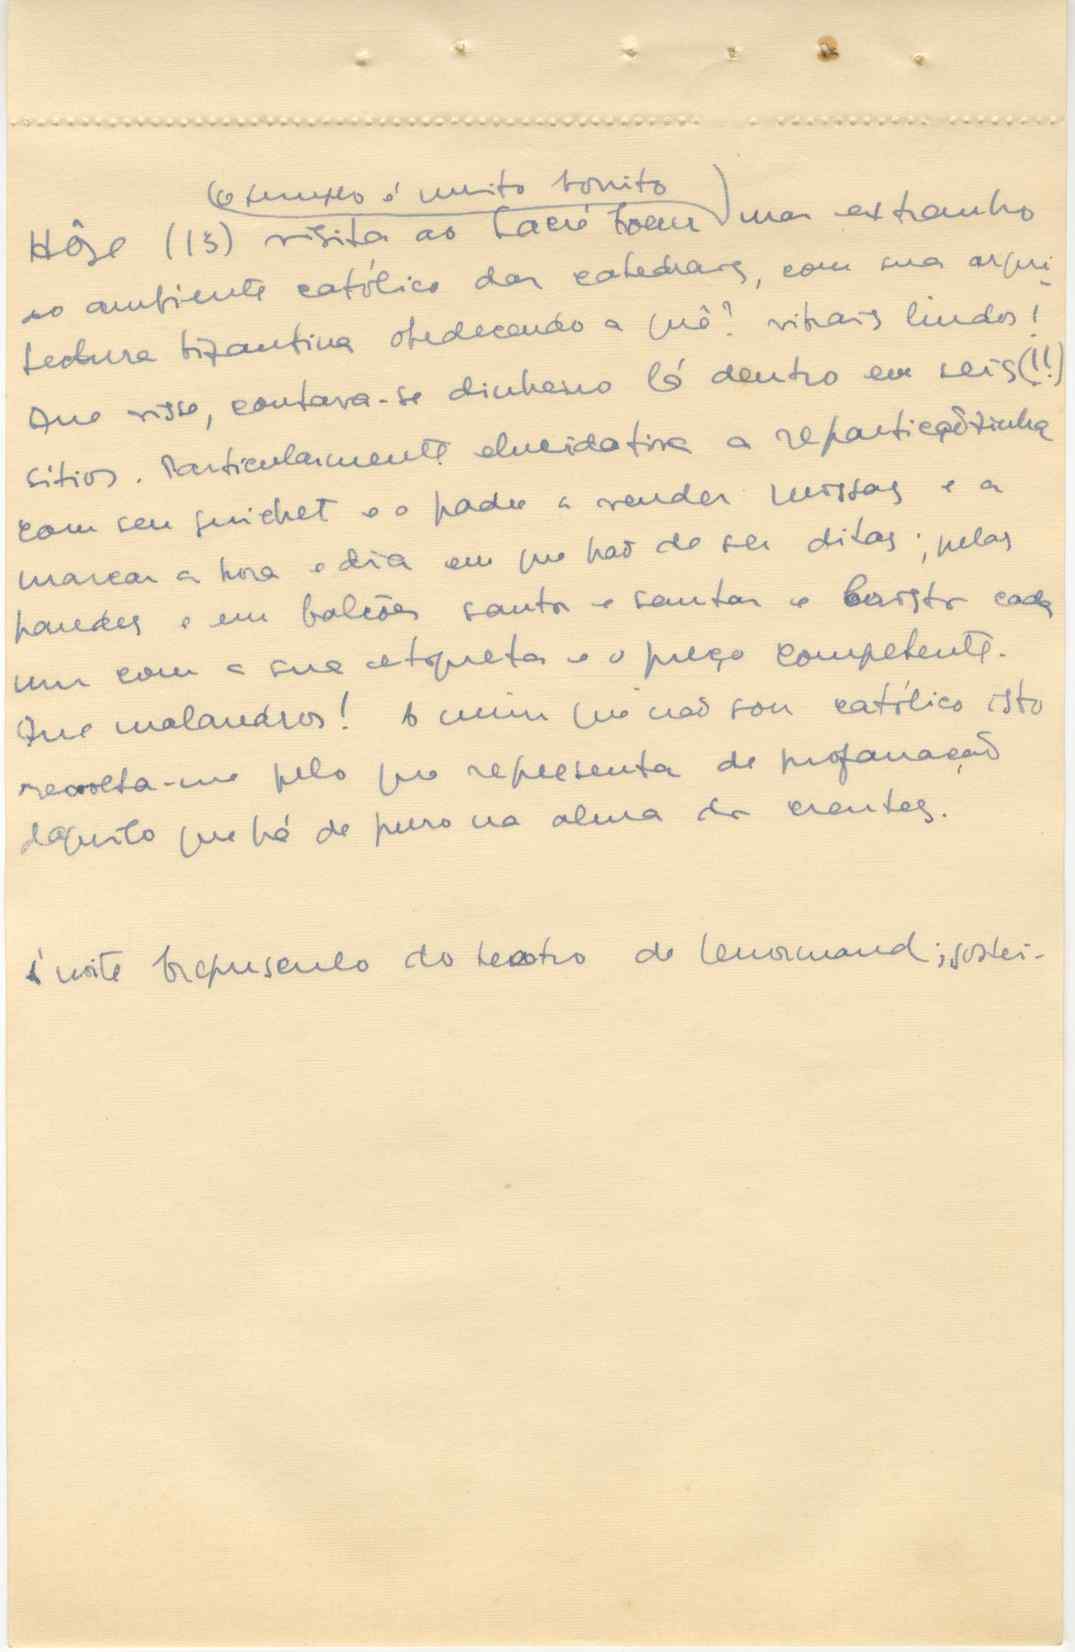 (o templo é muito bonito)
Hôje (13) visita ao Sacré Coeur mas extranho
ao ambiente católico das catedrais, com sua arqui-
tectura bizantina obedecendo a quê? vitrais lindos!
Que riso, contava-se dinheiro lá dentro em seis (!!)
sítios. Particularmente elucidativa a repartiçãozinha
com seu guichet e o padre a vender missas e a
marcar a hora e dia em que hão de ser ditas; pelas
paredes e em balcões santos e santas e Cristos cada
um com a sua etiqueta e o preço competente.
Que malandros! A mim que não sou católico isto
revolta-me pelo que representa de profanação
daquilo que há de puro na alma dos crentes.
À noite Crepusculo do teatro de Lenormand; gostei.